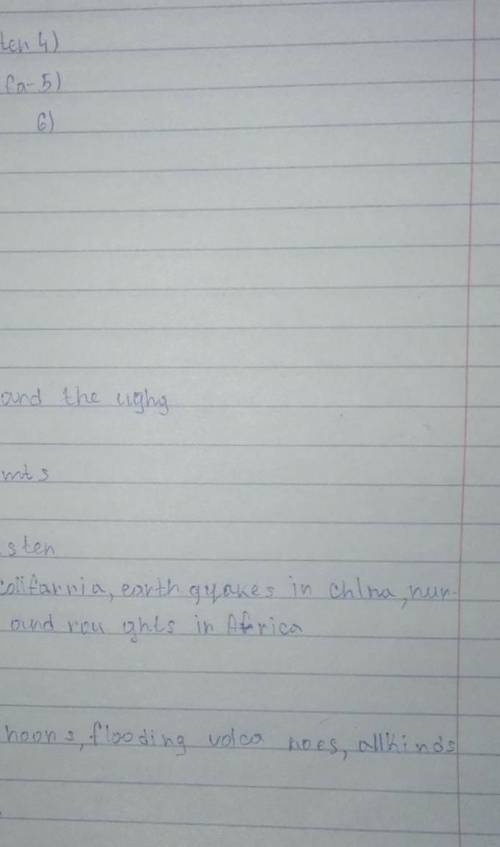 ten 4)
(a-5)
6)
and the ughg
mts
sten
colifarria, earth gyakes in chlna, hur-
and rou ghts in Africa
hoons, flooding volca noes, allkinds